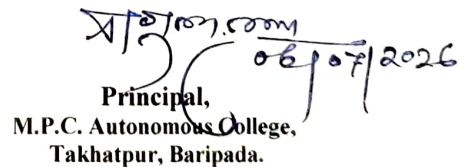 06/07/2026
Principal,
M.P.C. Autonomous College,
Takhatpur, Baripada.